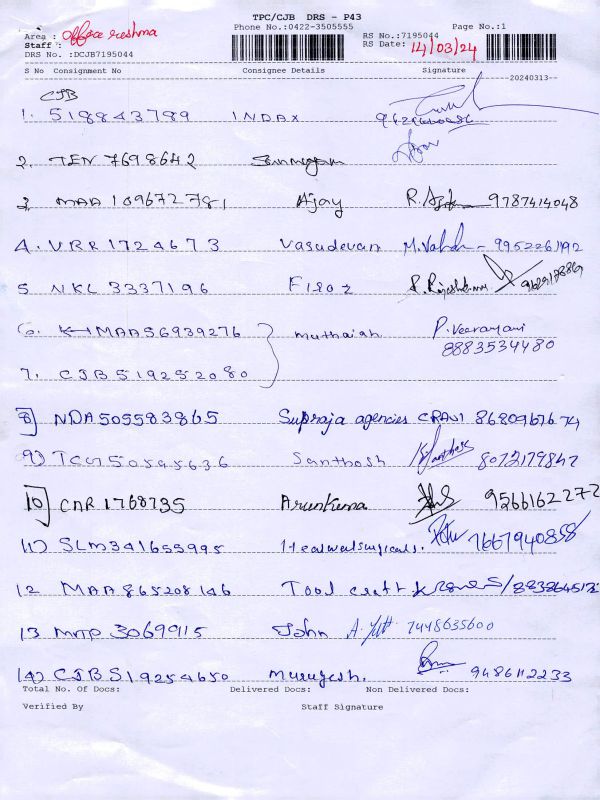 TPC/CJB DRS - P43
Phone No.:0422-3505555 Page No.:1
Area : office reshma
Staff :
RS No.:7195044
RS Date: 14/03/24
DRS No. :DCJB7195044
S No Consignment No Consignee Details Signature
20240313
CJB
1. 518843789 INDAX
2. TEN 7698642
3 MAA 109672781 Ajay 9787414048
4. VRR 1724673 Vasudevan 9952261192
5 NKL 3337196 Firoz
6. MAA56939276 muthaiah P. Veeramani
8883534480
7. CJB519252080
8) NDA505583865 Supraja agencies
9) TCG50595636 Santhosh 8072179847
10) CNR 1768735 Arunkumar 9566162272
11) SLM341655995 Healwelsurgicals. 7667940858
12 MAA 865208146 Tool craft
13 MTP 3069915 John 7448635600
14) CJB519254650 Murugesh. 9486112233
Total No. Of Docs: Delivered Docs: Non Delivered Docs:
Verified By Staff Signature